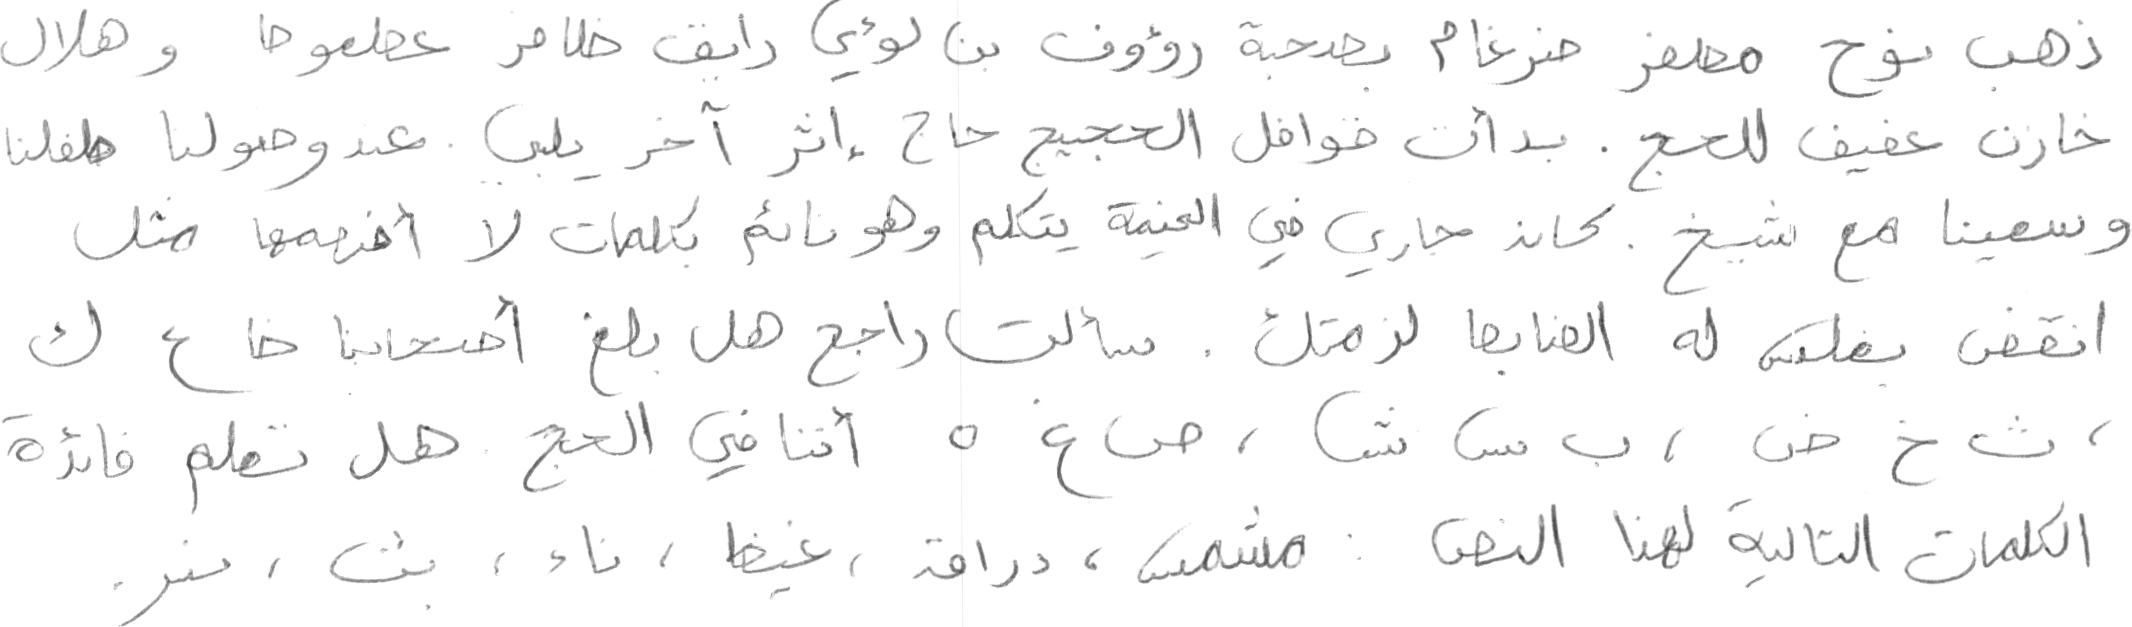 ذهب نوح مظفر ضرغام بصحبة رؤوف بن لؤي رايق ظافر عطعوط و هلال
خازن عفيف للحج . بدأت قوافل الحجيج حاج إثر آخر يلبي . عند وصولنا طفلنا
وسعينا مع شيخ . كان جاري في الخيمة يتكلم وهو نائم بكلمات لا أفهمها مثل
انقض بفلس له الضابط لزمتك . سألت راجع هل بلغ أصحابنا ظ ع ك
، ث خ ض ، ب س ش ، ص غ ه أتنا في الحج . هل تعلم فائدة
الكلمات التالية لهذا النص : مشمس ، دراق ، غيظ ، ناء ، بث ، نبر .